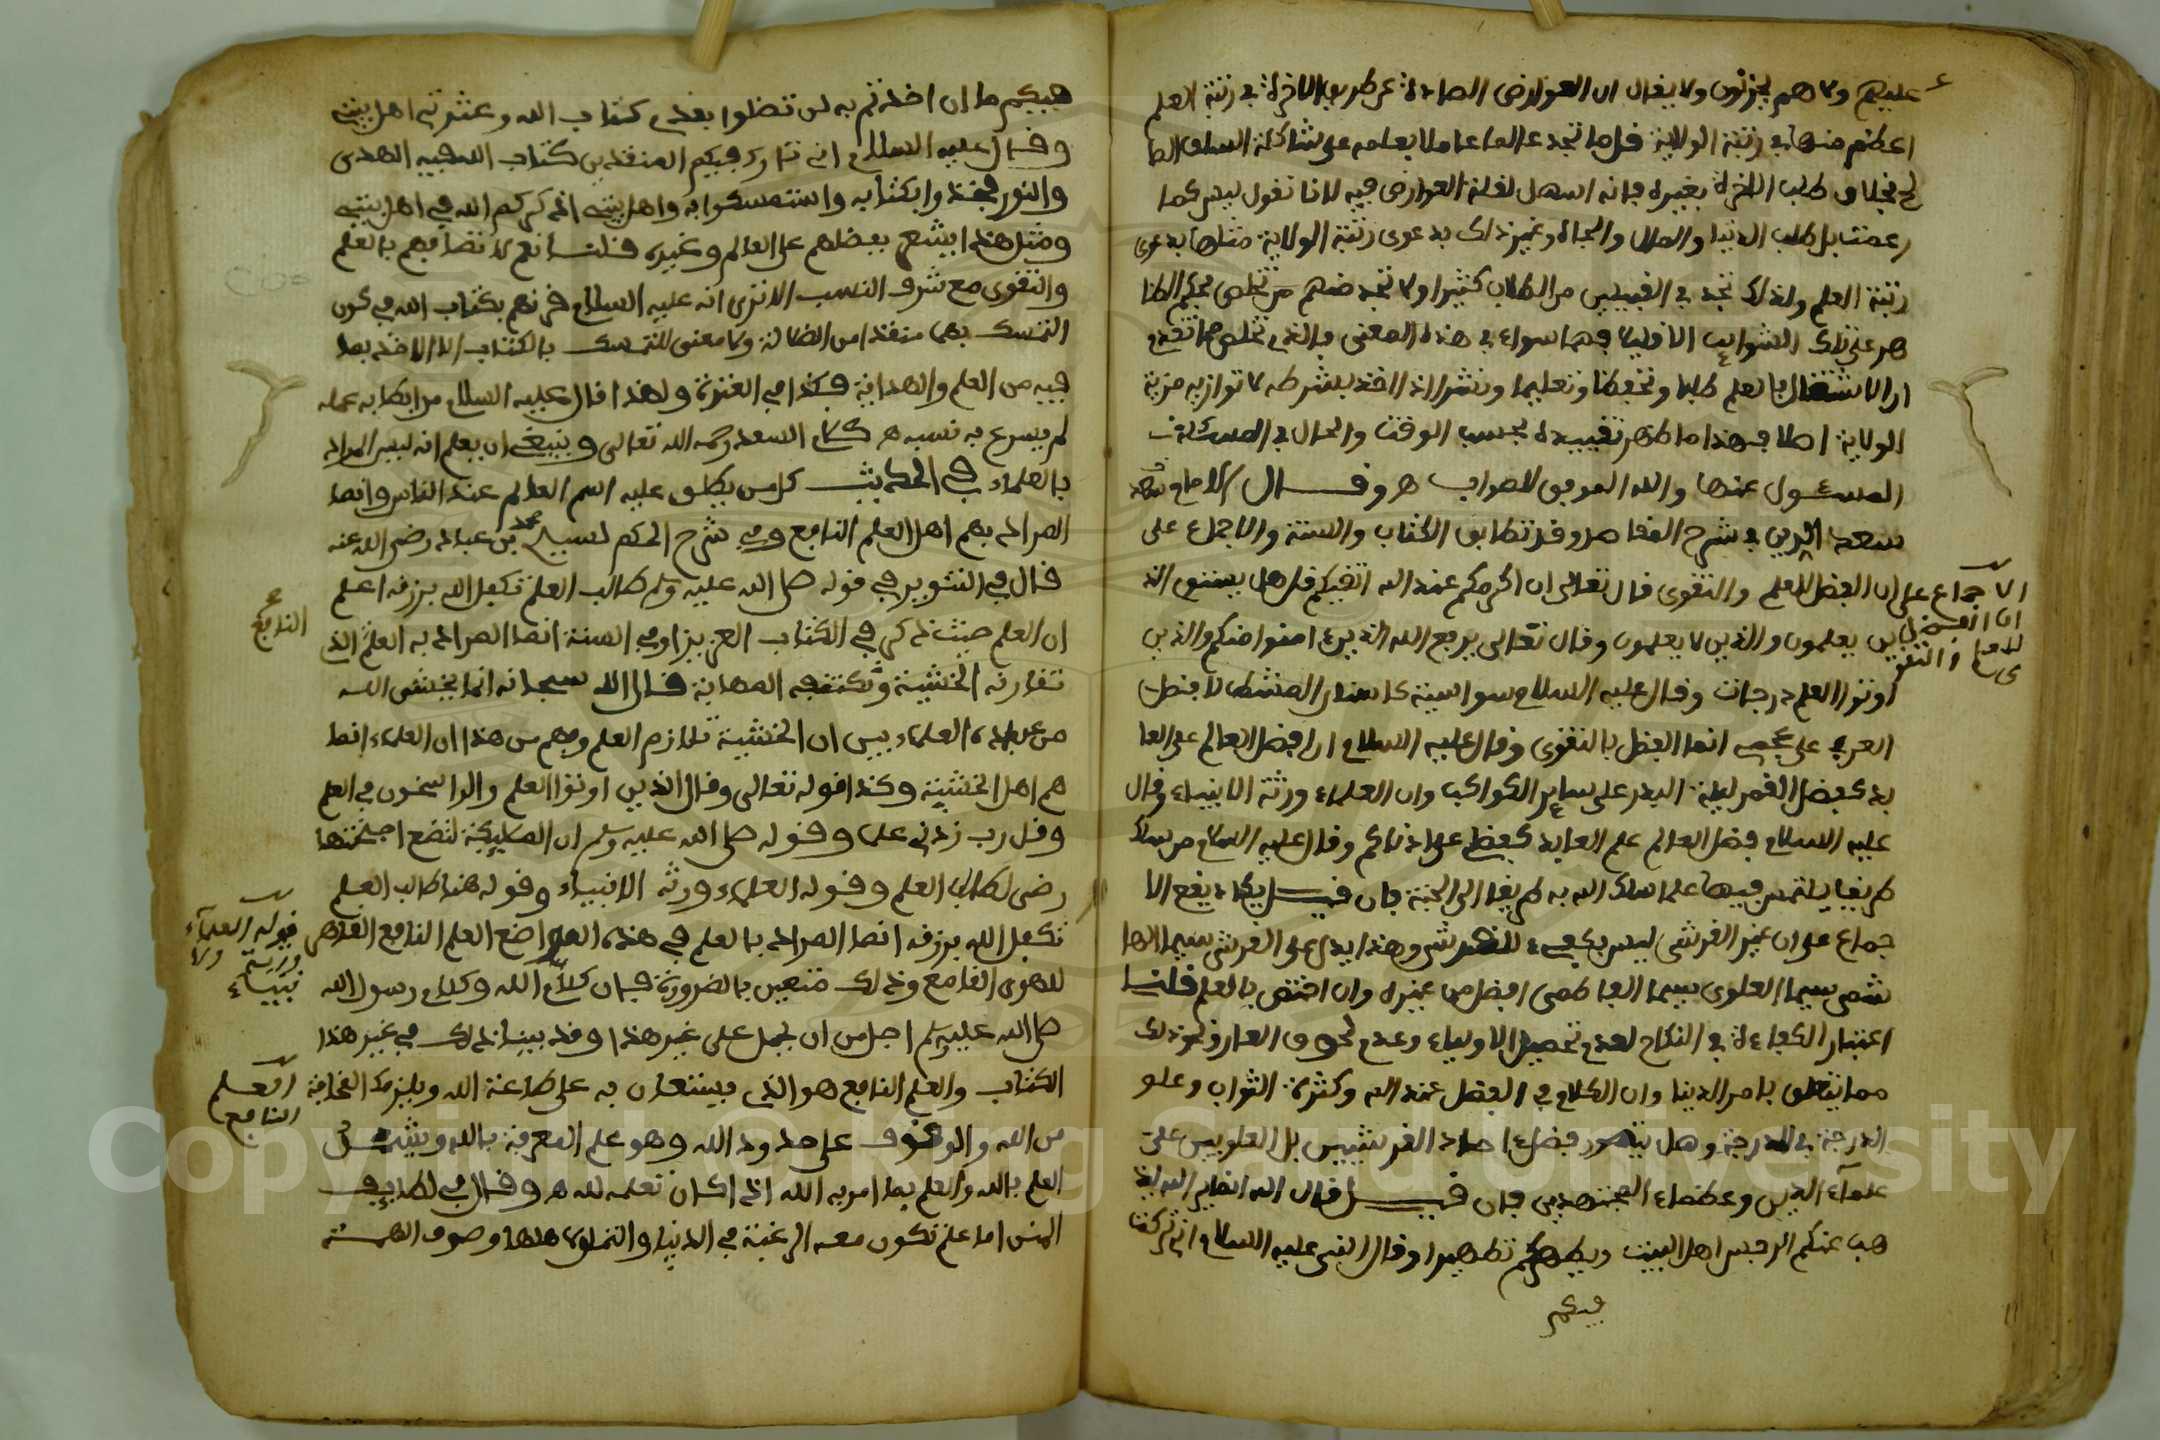 عليهم ولا هم يحزنون ولا يقال ان العوارض الصادة عن طريق الاخرة في رتبة العلم
اعظم منها في رتبة الولاية فلما تجد عالما عاملا بعلمه على شاكلة السلف الصا
لح بخلاف طلب الاخرة بغيره فانه اسهل لقلة العوارض فيه لانا نقول ليس كما
زعمت بل طلب الدنيا والمال والجاه وغير ذلك بدعوى رتبة الولاية مثلها بدعوى
رتبة العلم ولذلك تجد في القبيلين من الطلاب كثيرا ولا تجد منهم من تخلص بحكم الظا
هر عن تلك الشوايب الا قليلا فهما سواء في هذا المعنى والذي تخلص مما تقدم
ان الاشتغال بالعلم طلبا وتحفظا وتعليما ونشرا اذا اخذ بشرطه لا توازيه مزية
الولاية اصلا فهذا ما ظهر تقييده بحسب الوقت والحال في المسئلة
المسئول عنها والله الموفق للصواب هـ وقال الامام
سعد الدين في شرح المقاصد وقد تطابق الكتاب والسنة والاجماع على
ان الفضل للعلم والتقوى قال تعالى ان اكرمكم عند الله اتقيكم قل هل يستوي الذ
ين يعلمون والذين لا يعلمون وقال تعالى يرفع الله الذين ءامنوا منكم والذين
اوتوا العلم درجات وقال عليه السلام سواسية كاسنان المشط لا فضل
العربي على عجمي انما الفضل بالتقوى وقال عليه السلام ان افضل العالم على العا
بد كفضل القمر ليلة البدر على ساير الكواكب وان العلماء ورثة الانبياء وقال
عليه السلام فضل العالم على العابد كفضلي على ادناكم وقال عليه السلام من سلك
طريقا يلتمس فيها علما سلك الله به طريقا الى الجنة فان قيل يكاد يقع الا
جماع على ان غير القرشي ليس بكفء للقرشي وهذا يدل على القرشي سيما الها
شمي سيما العلوي سيما الفاطمي افضل من غيره وان اختص بالعلم قلنا
اعتبار الكفاءة في النكاح لعدم تحصيل الاولياء وعدم لحوق العار ونحو ذلك
مما يتعلق بامر الدنيا وان الكلام في الفضل عند الله وكثرة الثواب وعلو
الدرجة في الدرجة وهل يتصور فضل احاد القرشيين بل العلويين على
علماء الدين وعظماء المجتهدين فان قيل قال الله انما يريد الله ليذ
هب عنكم الرجس اهل البيت ويطهركم تطهيرا وقال النبي عليه السلام اني تركت
فيكم
الاجماع على
ان الفضل
للعلم والتقو
ى
فيكم ما ان اخذتم به لن تضلوا بعدي كتاب الله وعترتي اهل بيتي
وقال عليه السلام اني تارك فيكم الثقلين كتاب الله فيه الهدى
والنور فخذوا بكتابه واستمسكوا به واهل بيتي اذكركم الله في اهل بيتي
ومثل هذا يشعر بفضلهم على العالم وغيره قلنا نعم لاتصافهم بالعلم
والتقوى مع شرف النسب الا ترى انه عليه السلام قرنهم بكتاب الله في كون
التمسك بهما منقذا من الضلالة ولا معنى للتمسك بالكتاب الا الاخذ بما
فيه من العلم والهداية فكذا في العترة ولهذا قال عليه السلام من ابطا به عمله
لم يسرع به نسبه هـ كلام السعد رحمه الله تعالى وينبغي ان يعلم انه ليس المراد
بالعلماء في الحديث كل من يطلق عليه اسم العالم عند الناس وانما
المراد بهم اهل العلم النافع وفي شرح الحكم لسيدي محمد بن عباد رضي الله عنه
قال في التنوير في قوله صلى الله عليه وسلم طالب العلم تكفل الله برزقه اعلم
ان العلم حيث ذكر في الكتاب العزيز او في السنة انما المراد به العلم الذي
تقارنه الخشية وتكتنفه المهابة قال الله سبحانه انما يخشى الله
من عباده العلماء بين ان الخشية تلازم العلم وفهم من هذا ان العلماء انما
هم اهل الخشية وكذا قوله تعالى وقال الذين اوتوا العلم والراسخون في العلم
وقل رب زدني علما وقوله صلى الله عليه وسلم ان المليكة لتضع اجنحتها
رضى لطالب العلم وقوله العلماء ورثة الانبياء وقوله هنا طالب العلم
تكفل الله برزقه انما المراد بالعلم في هذه المواضع العلم النافع القاهر
للهوى القامع وذلك متعين بالضرورة فان كلام الله وكلام رسول الله
صلى الله عليه وسلم اجل من ان يحمل على غير هذا وقد بينا ذلك في غير هذا
الكتاب والعلم النافع هو الذي يستعان به على طاعة الله ويلزمك المخافة
من الله والوقوف على حدود الله وهو علم المعرفة بالله ويشمل
العلم بالله والعلم بما امر به الله اذا كان تعلمه لله هـ وقال في لطايف
المنن اما علم تكون معه الرغبة في الدنيا والتملق لاهلها وصرف الهمة
النافع
قوله العلماء
ورثة الا
نبياء
العلم
النافع
Copyright © King Saud University